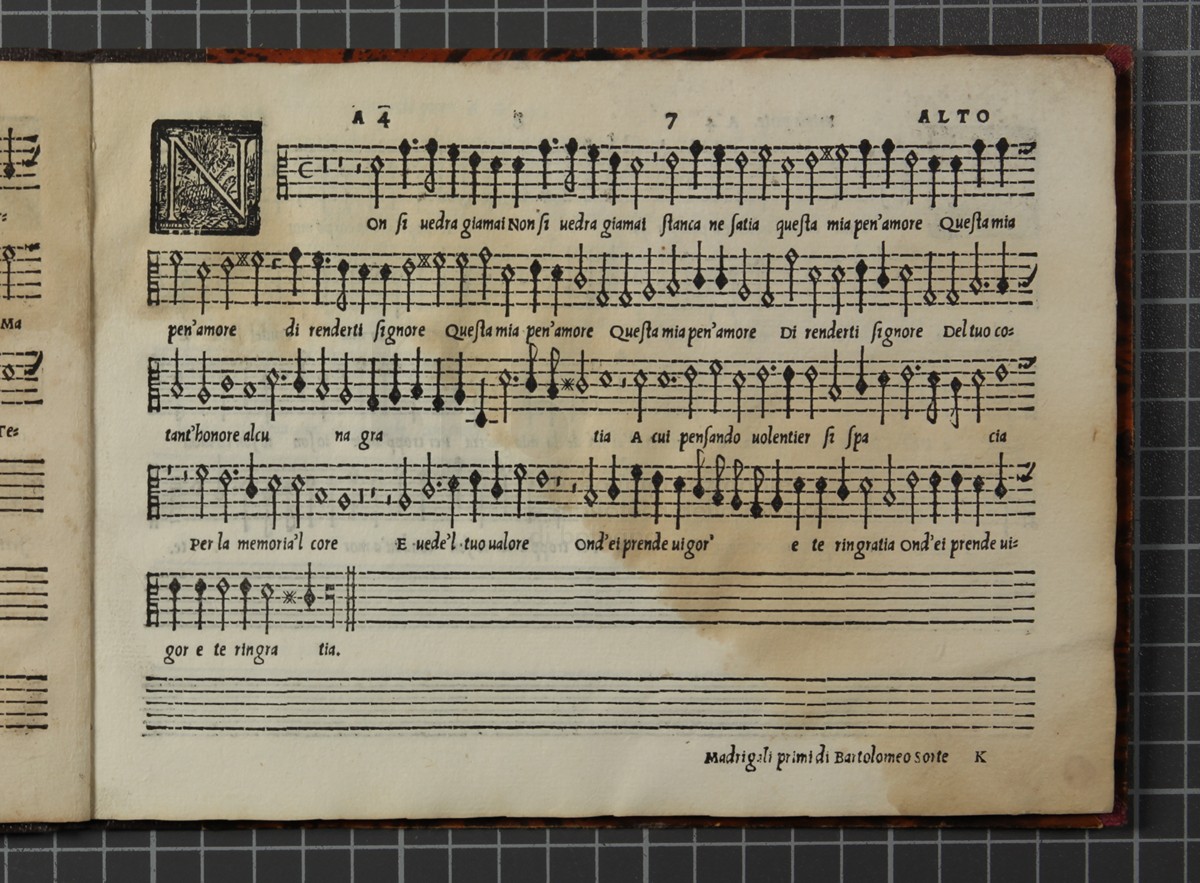 A 4 7 ALTO
NOn si uedra giamai Non si uedra giamai stanca ne satia questa mia pen'amore Questa mia
pen'amore di renderti signore Questa mia pen'amore Questa mia pen'amore Di renderti signore Del tuo co=
Ma
tant'honore alcu na gra tia A cui pensando uolentier si spa cia
Te=
Per la memoria'l core E uede'l tuo ualore Ond'ei prende uigor' e te ringratia Ond'ei prende ui=
gor e te ringra tia.
Madrigali primi di Bartolomeo Sorte K